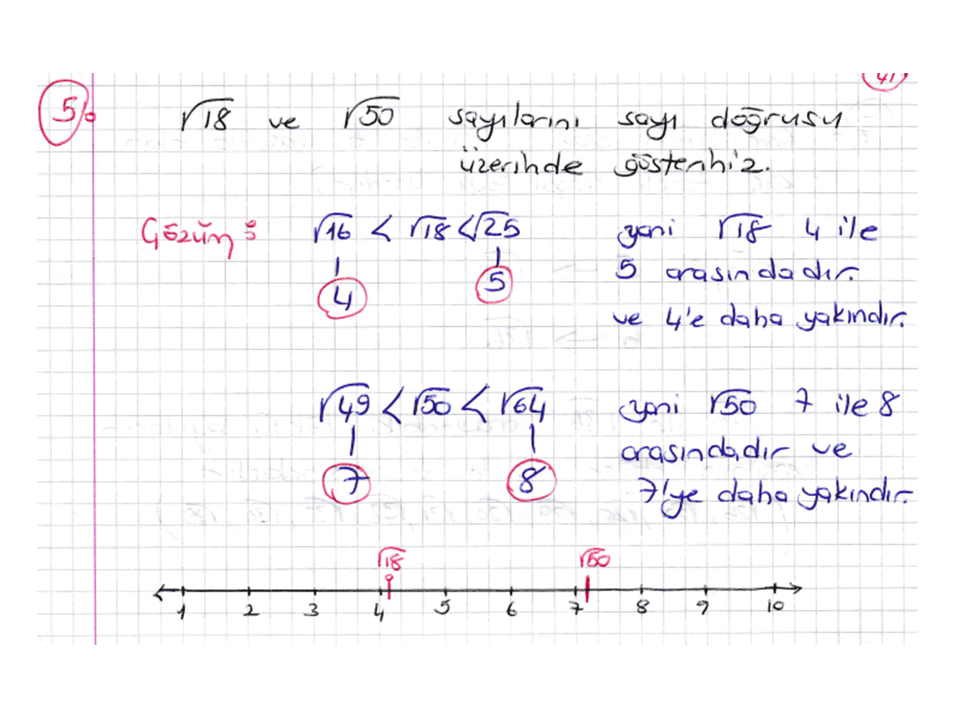 41
5)
√18 ve √50 sayılarını sayı doğrusu
üzerinde gösteriniz.
Çözüm: √16 < √18 < √25 yani √18 4 ile
4 5 5 arasındadır.
ve 4'e daha yakındır.
√49 < √50 < √64 yani √50 7 ile 8
7 8 arasındadır ve
7'ye daha yakındır.
√18 √50
1 2 3 4 5 6 7 8 9 10